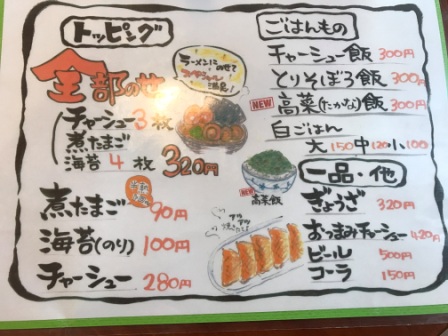 トッピング
全部のせ
チャーシュー3枚
煮たまご
海苔4枚 320円
煮たまご 90円
海苔(のり) 100円
チャーシュー 280円
ラーメンにのせて
ごはんもの
チャーシュー飯 300円
とりそぼろ飯 300円
NEW 高菜(たかな)飯 300円
白ごはん
大150 中120 小100
NEW
高菜飯
一品・他
ぎょうざ 320円
おつまみチャーシュー 420円
ビール 500円
コーラ 150円
アツアツ